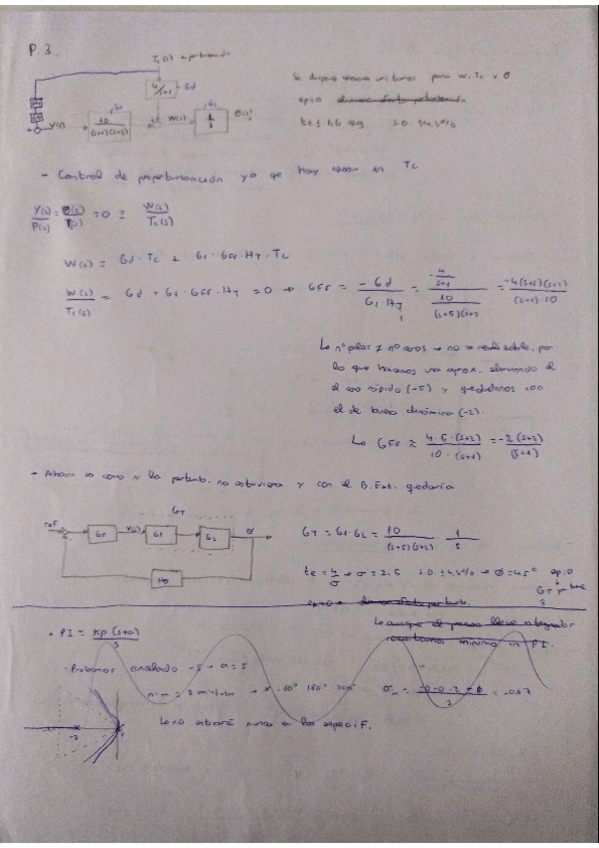 P. 3.
Tc(s) perturbación
4/s+1 Gd
V(s) 10/(s+5)(s+2) G1 W(s) 1/s G2 θ(s)
Se dispone sensores unitarios para W, Tc y θ
ep=0
te ≤ 1,6 seg S.O. ≤ 4,5%
- Control de preperturbación ya que hay sensor en Tc
Y(s)/P(s) = θ(s)/T(s) = 0 = W(s)/Tc(s)
W(s) = Gd · Tc + G1 · GFF · HT · Tc
W(s)/Tc(s) = Gd + G1 · GFF · HT = 0 → GFF = -Gd/G1·HT = -4/s+1 / 10/(s+5)(s+2) = -4(s+5)(s+2)/(s+1)·10
Lo nº polos ≠ nº ceros → no es realizable, por
lo que hacemos una aprox. eliminando el
el cero rápido (-5) y quedándonos con
el de buena dinámica (-2).
Lo GFF ≈ 4·5·(s+2)/10·(s+1) = -2(s+2)/(s+1)
- Ahora es como si la perturb. no estuviera y con el B. Ext. quedaría
GT
ref Gc V(s) G1 G2 θ
Hθ
GT = G1·G2 = 10/(s+5)(s+2) · 1/s
te = 4/σ → σ = 2.5 S.O. ≤ 4,5% → Φ = 45° ep=0
Lo aunque el proceso lleve integrador
mínimo un PI.
• PI = Kp(s+a)/s
· Probamos anulando -5 → a = 5
n-m = 3 → 60° 180° 300° σa = -0-0-2+0/3 = -0,67
Lo no estará nunca en las especif.